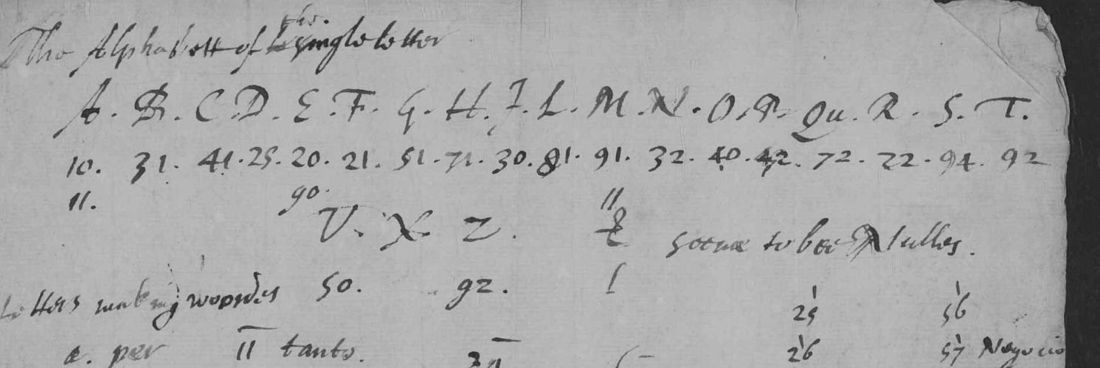 The Alphabett of the single letter
A. B. C. D. E. F. G. H. I. L. M. N. O. P. Qu. R. S. T.
10. 31. 41. 25. 20. 21. 51. 71. 30. 81. 91. 32. 40. 42. 72. 22. 94. 92
11. 90.
V. X Z. seeme to bee Nulles.
50. 92.
Letters making woordes
25 56
a. per 11 tanto.
26 57 Negocio